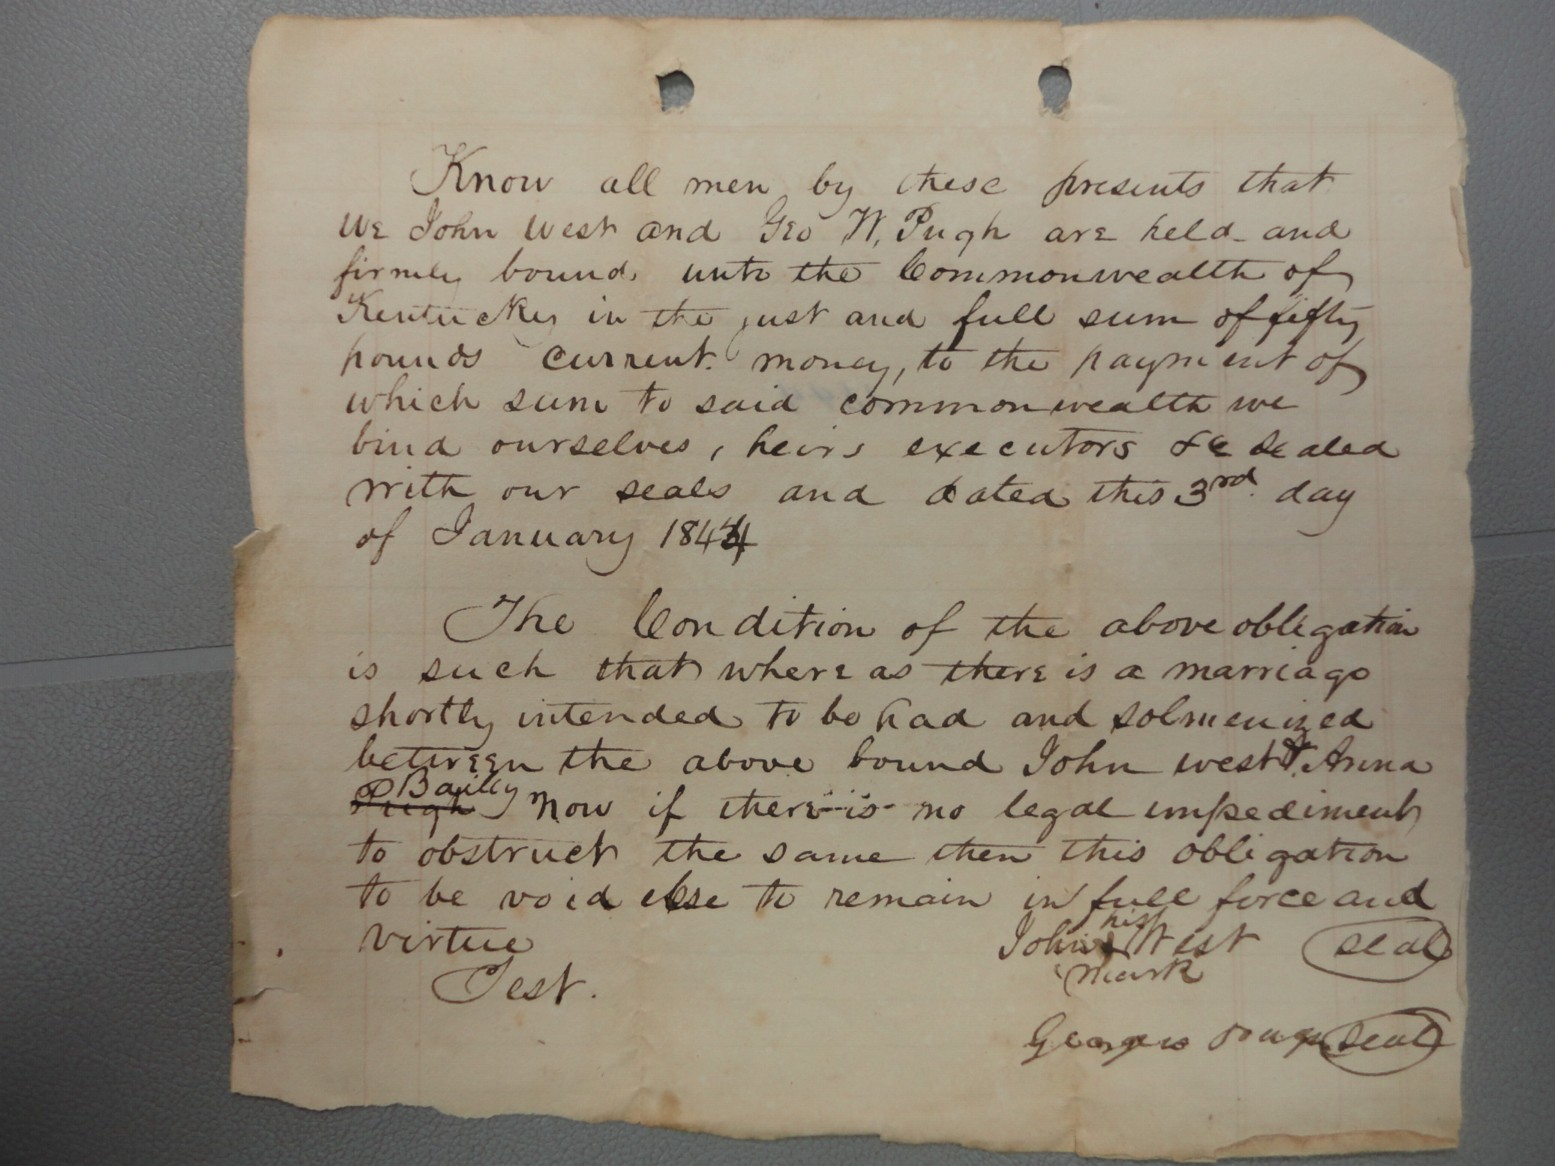 Know all men by these presents that
we John West and Geo W. Pugh are held and
firmly bound unto the Commonwealth of
Kentucky in the just and full sum of fifty
pounds current money, to the payment of
which sum to said commonwealth we
bind ourselves, heirs executors &c sealed
with our seals and dated this 3rd day
of January 1844
The Condition of the above obligation
is such that where as there is a marriage
shortly intended to be had and solmenized
between the above bound John West & Anna
Pugh Bailey Now if there is no legal impediment
to obstruct the same then this obligation
to be void else to remain in full force and
virtue
John his West seal
mark
Test.
George w Pugh seal